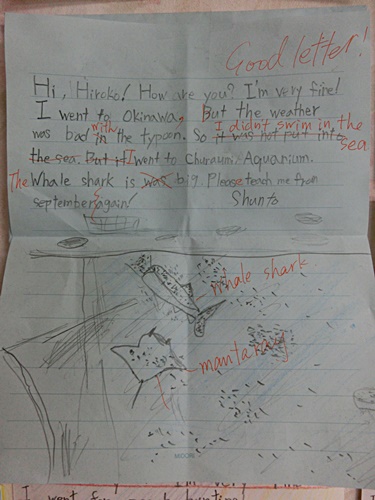 Good letter!
Hi, Hiroko! How are you? I'm very fine!
I went to Okinawa, But the weather
was bad in with the typoon. So it was not put into I didn't swim in the
the sea. But if I went to Churaumi Aquarium. sea
The Whale shark is was big. Please teach me from
september again! Shunto
whale shark
manta ray
I'm very
I went